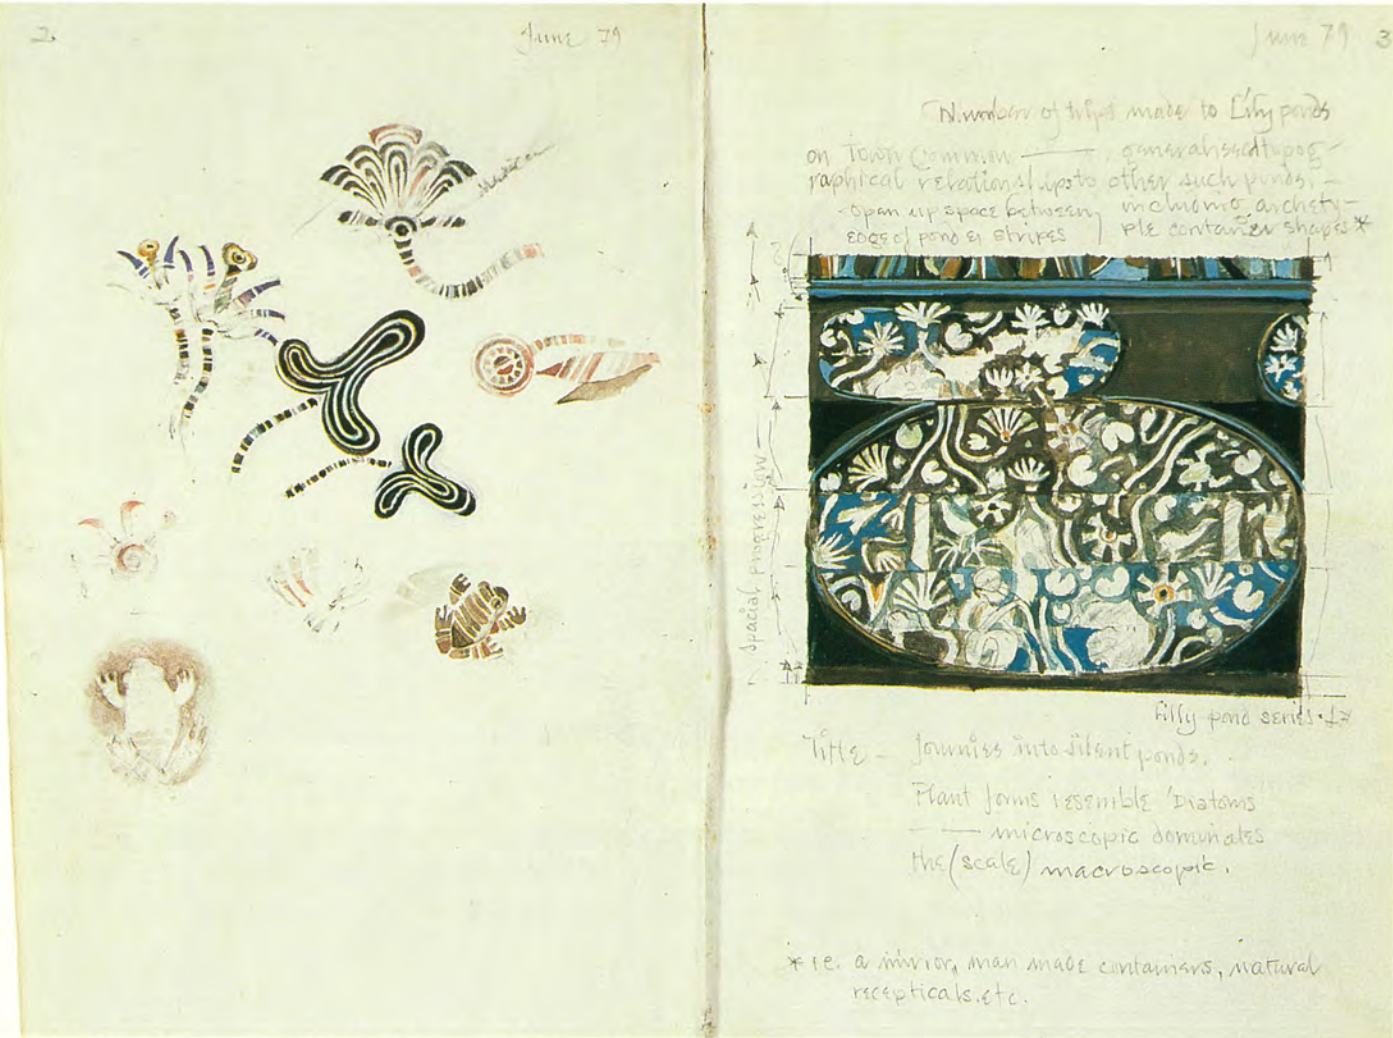 2.
June 79
Mexican
June 79
3
Number of trips made to Lily ponds
on Town Common —— generalised topog-
raphical relationships to other such ponds, —
- open up space between
edge of pond & stripes
including archety-
ple container shapes *
spacial progression
Lilly pond series.
Title – Journies into silent ponds.
Plant forms resemble 'Diatoms
—— microscopic dominates
the (scale) macroscopic.
* ie. a mirror, man made containers, natural
recepticals. etc.